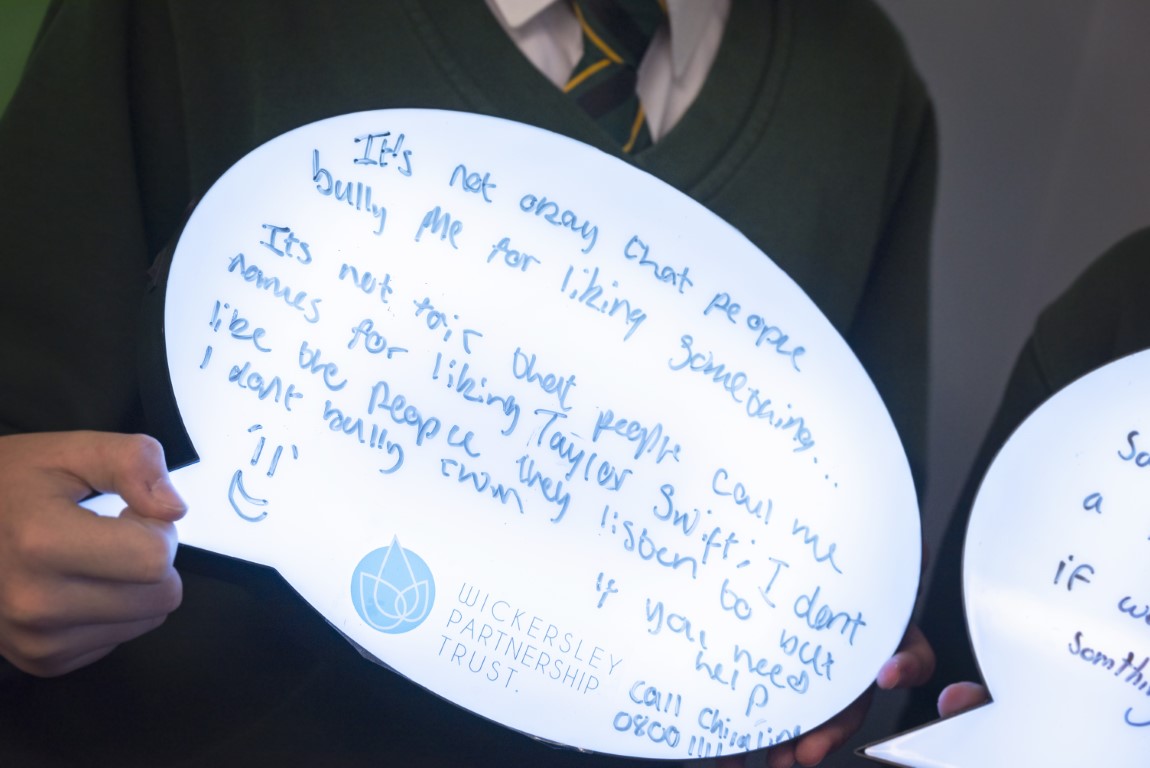 It's not okay that people
bully me for liking something...
Its not fair that people call me
names for liking Taylor Swift; I dont
like the people they listen to but
I dont bully them
if you need
help
call childline
0800 1111
WICKERSLEY
PARTNERSHIP
TRUST.
So
a
if we
Somthing